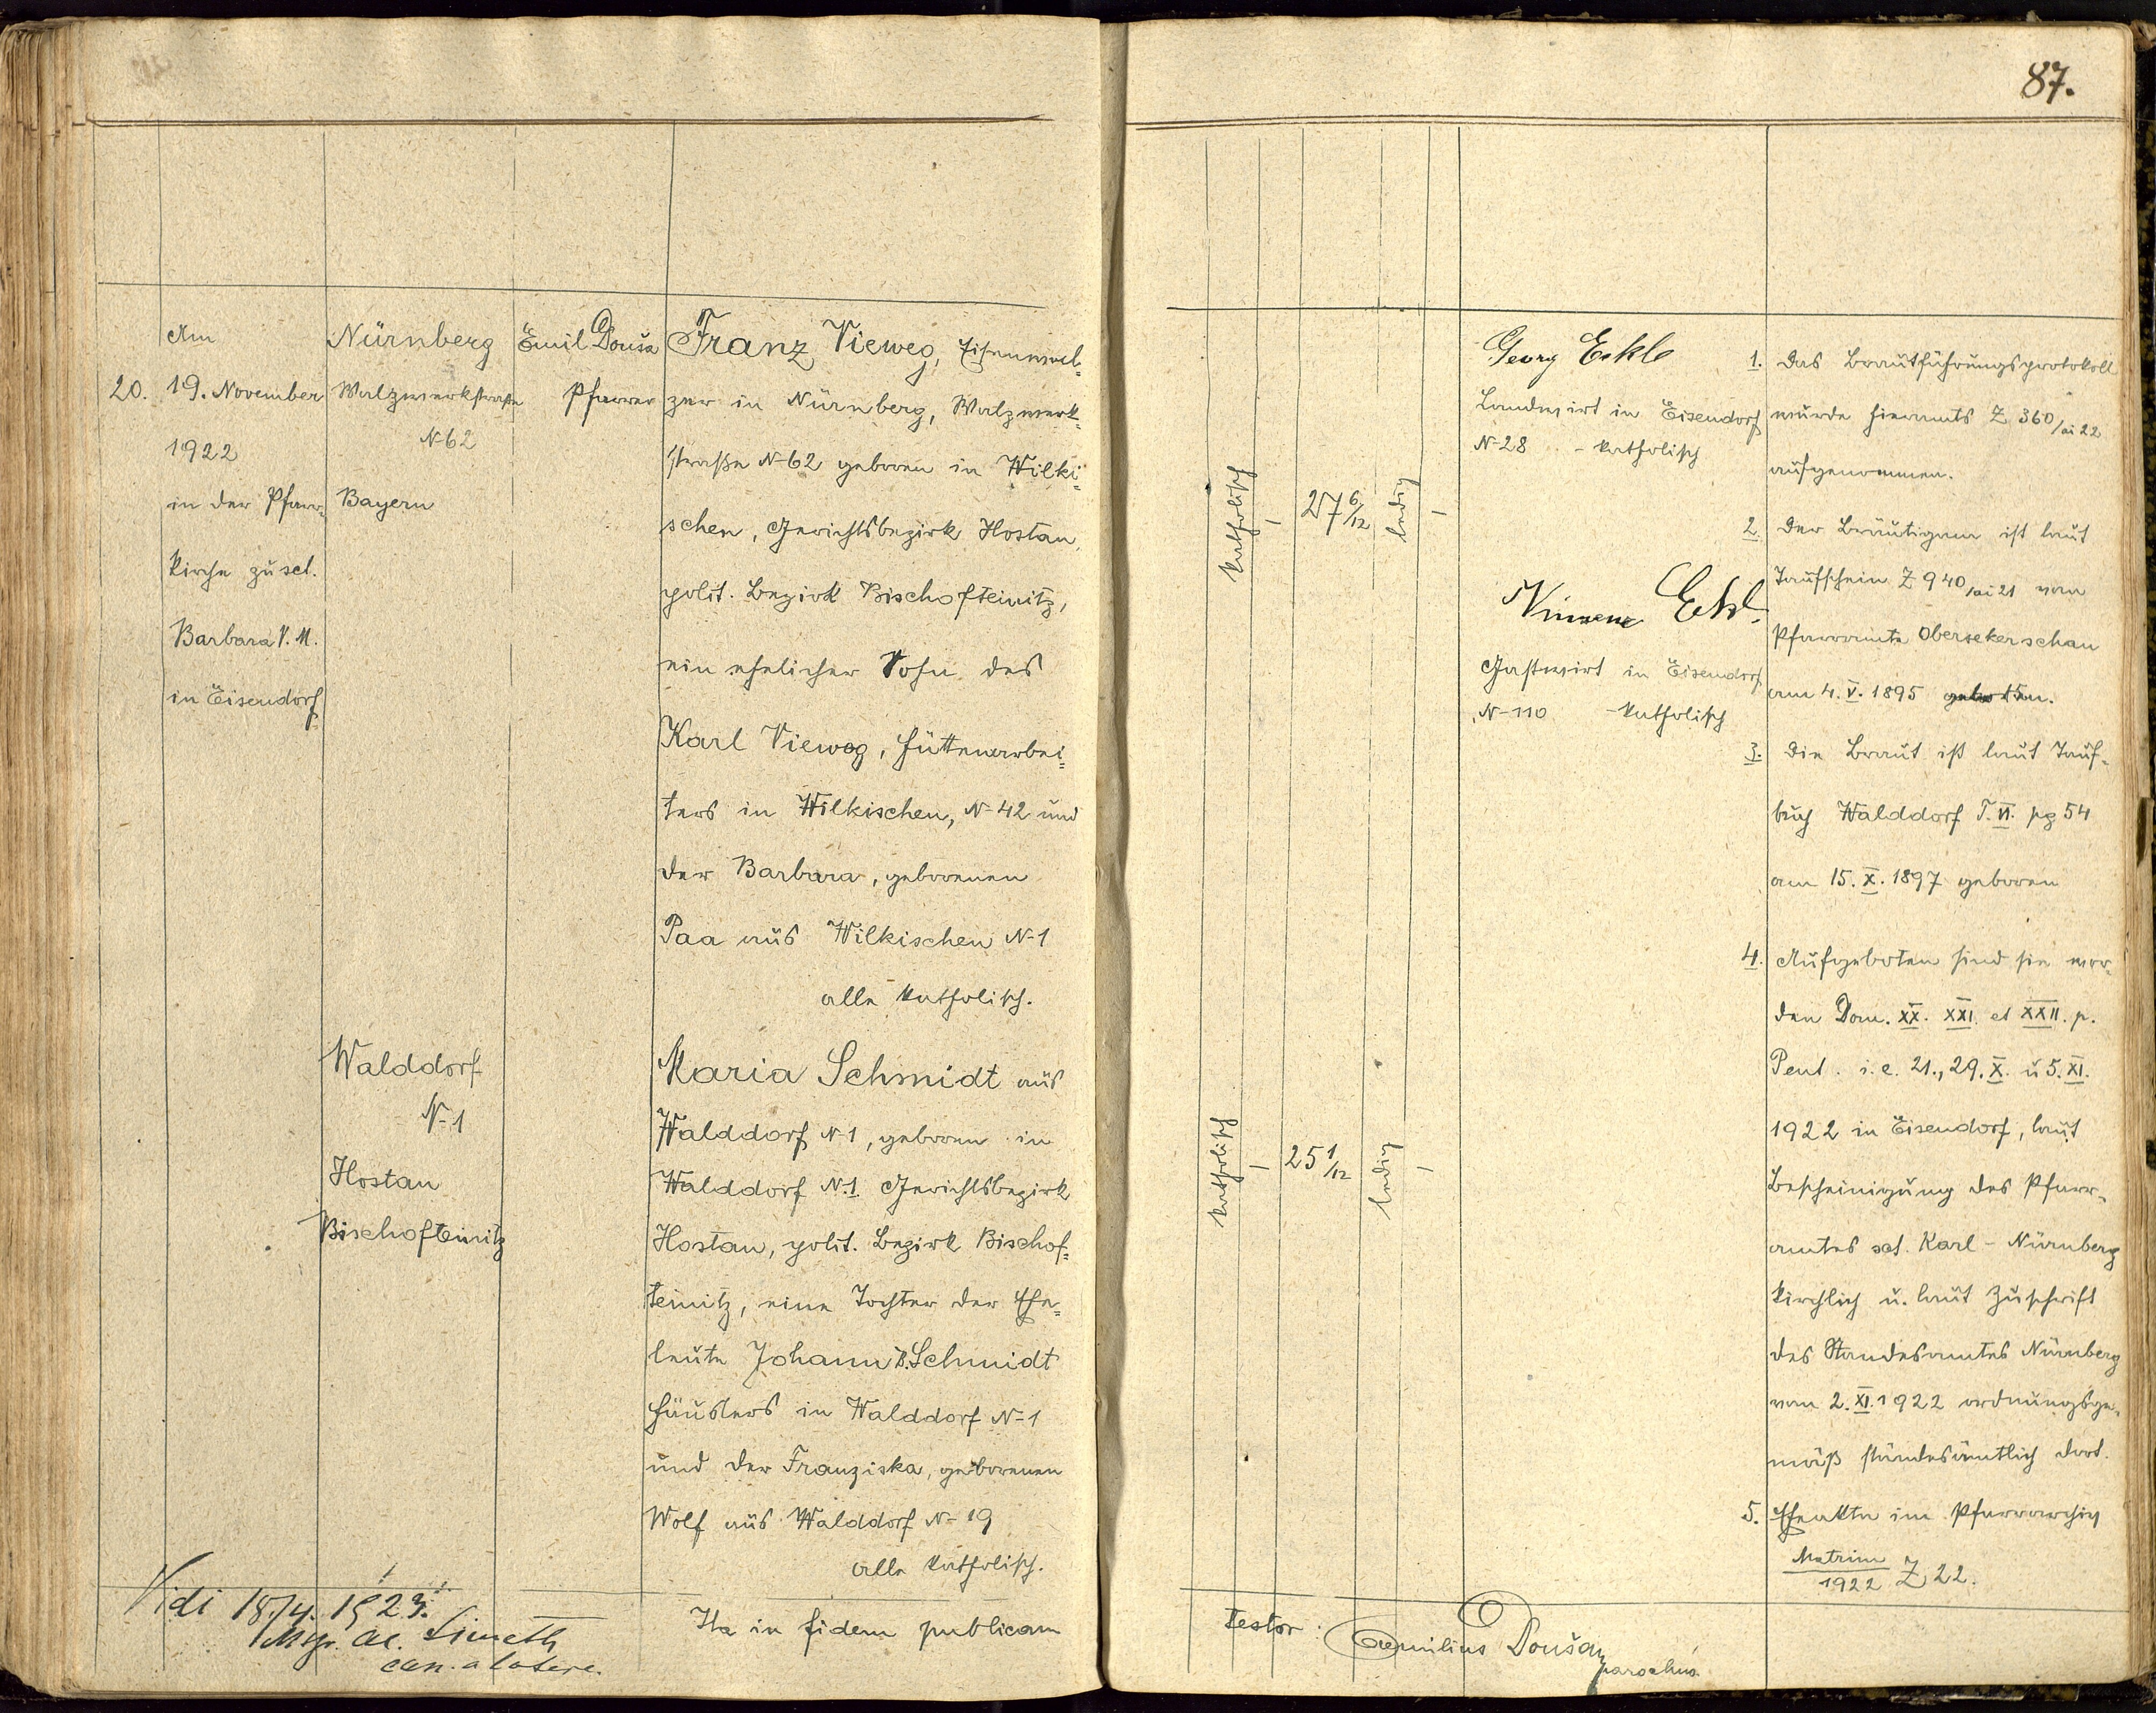 87.
Am
20. 19. November
1922
in der Pfarr-
kirche zu sct.
Barbara V. M.
in Eisendorf
Nürnberg
Walzwerkstraße
N-62
Bayern
Emil Douša
Pfarrer
Franz Vieweg, Eisenwal=
zer in Nürnberg, Walzwerk=
straße N-62 geboren in Wilki=
schen, Gerichtsbezirk Hostau,
polit. Bezirk Bischofteinitz,
ein ehelicher Sohn des
Karl Vieweg, Hüttenarbei=
ters in Wilkischen, N-42 und
der Barbara, geborenen
Paa aus Wilkischen N-1
alle katholisch.
katholisch
-
27 6/12
ledig
-
Georg Eckl
Landwirt in Eisendorf
N-28 - katholisch
Eckl.
Gastwirt in Eisendorf
N-110 - katholisch
Walddorf
N-1
Hostau
Bischofteinitz
Maria Schmidt aus
Walddorf N-1, geboren in
Walddorf N.1 Gerichtsbezirk
Hostau, polit. Bezirk Bischof=
teinitz, eine Tochter der Ehe=
leute Johann B. Schmidt
Häuslers in Walddorf N-1
und der Franziska, geborenen
Wolf aus Walddorf N-19
alle katholisch.
katholisch
-
25 1/12
ledig
-
1. Das Brautführungsprotokoll
wurde hieramts Z 360/ai 22
aufgenommen.
2. Der Bräutigam ist laut
Taufschein Z 940/ai 21 vom
Pfarramte Obersekerschan
am 4. V. 1895 geboren.
3. Die Braut ist laut Tauf-
buch Walddorf T. VI. pg 54
am 15. X. 1897 geboren
4. Aufgeboten sind sie wor-
den Dom. XX. XXI. et XXII. p.
Pent. i. e. 21., 29. X. u 5. XI.
1922 in Eisendorf, laut
Bescheinigung des Pfarr-
amtes sct. Karl - Nürnberg
kirchlich u. laut Zuschrift
des Standesamtes Nürnberg
vom 2. XI. 1922 ordnungsge-
mäß standesämtlich dort.
5. Eheakten im Pfarrarchiv
Matrim
1922 Z 22.
Vidi 18./4. 1923.
Msgr.
can. a latere.
Ita in fidem publicam
testor: Aemilius Douša
parochus